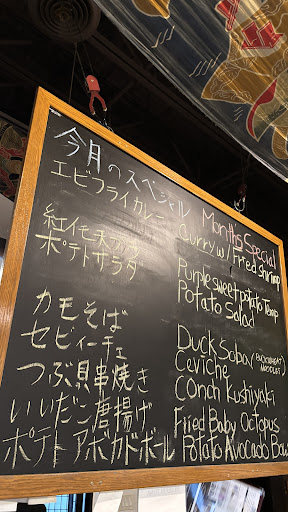 今月のスペシャル Months Special
エビフライカレー Curry w/ Fried shrimp
紅イモ天プラ Purple sweet potato Temp
ポテトサラダ Potato Salad
カモそば Duck Soba (BUCKWHEAT NOODLE)
セビィーチェ Ceviche
つぶ貝串焼き Conch Kushiyaki
いいだこ唐揚げ Fried Baby Octopus
ポテトアボカドボール Potato Avocado Bowl